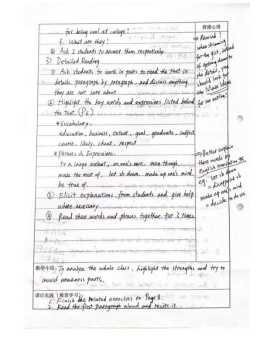 for being cool at college?
f. What are they?
② Ask 2 students to answer them respectively.
3) Detailed Reading
① Ask students to work in pairs to read the text in
details, paragraph by paragraph, and discuss anything
they are not sure about.
② Highlight the key words and expressions listed behind
the text. (P6)
*Vocabulary
education, business, extent, goal, graduate, subject
course, likely, chant, respect
*Phrases & Expressions
to a large extent, on one's own, even though,
make the most of, let sb down, make up one's mind,
be true of
③ Elicit explanations from students and give help
where necessary.
④ Read these words and phrases together for 2 times.
Remind
when skimming
for the gist, instead
of getting down to
the detail,
look for
the main ideas
Better explain
these words by
English
eg: let sb down
= disappoint sb
make up one's mind
= decide to do sth
教学小结: To analyze the whole class, highlight the strengths and try to
avoid weakness parts.
1. Finish the related exercises on Page 8.
2. Read the first paragraph aloud and recite it.